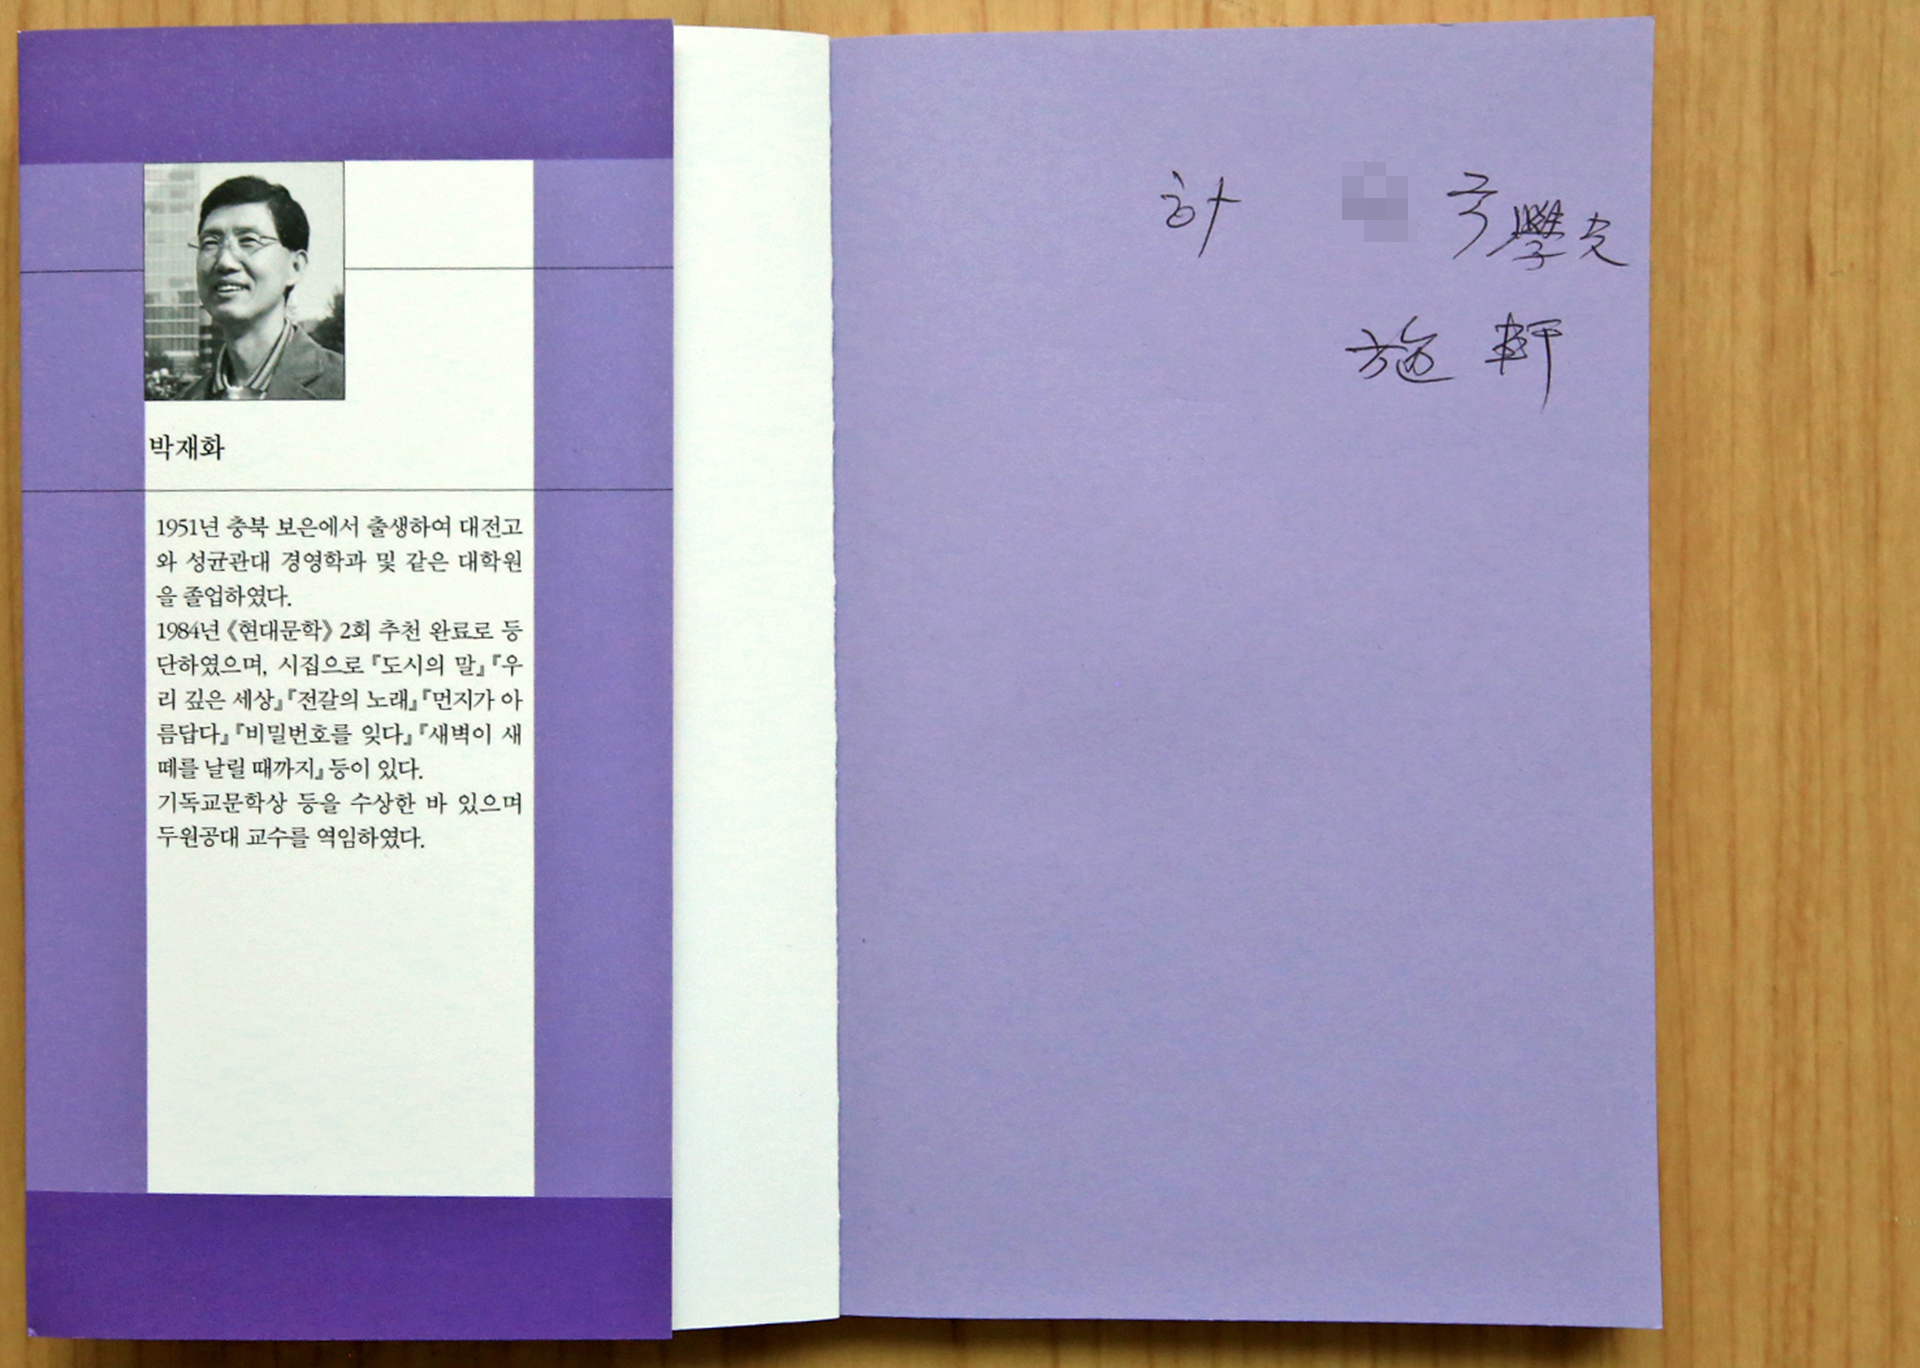 박재화
1951년 충북 보은에서 출생하여 대전고
와 성균관대 경영학과 및 같은 대학원
을 졸업하였다.
1984년 《현대문학》 2회 추천 완료로 등
단하였으며, 시집으로 『도시의 말』 『우
리 깊은 세상』 『전갈의 노래』 『먼지가 아
름답다』 『비밀번호를 잊다』 『새벽이 새
떼를 날릴 때까지』 등이 있다.
기독교문학상 등을 수상한 바 있으며
두원공대 교수를 역임하였다.
學兄
施軒